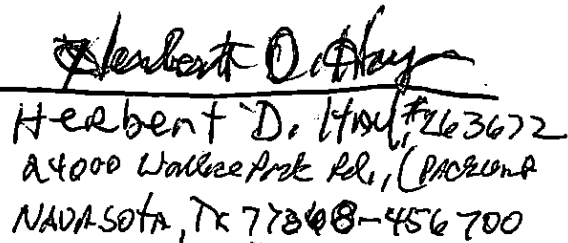 Herbert D. Hay
Herbert D. Hay, #263672
24000 Wallace Pack Rd., (Pack Unit
NAVASOTA, TX 77868-456700